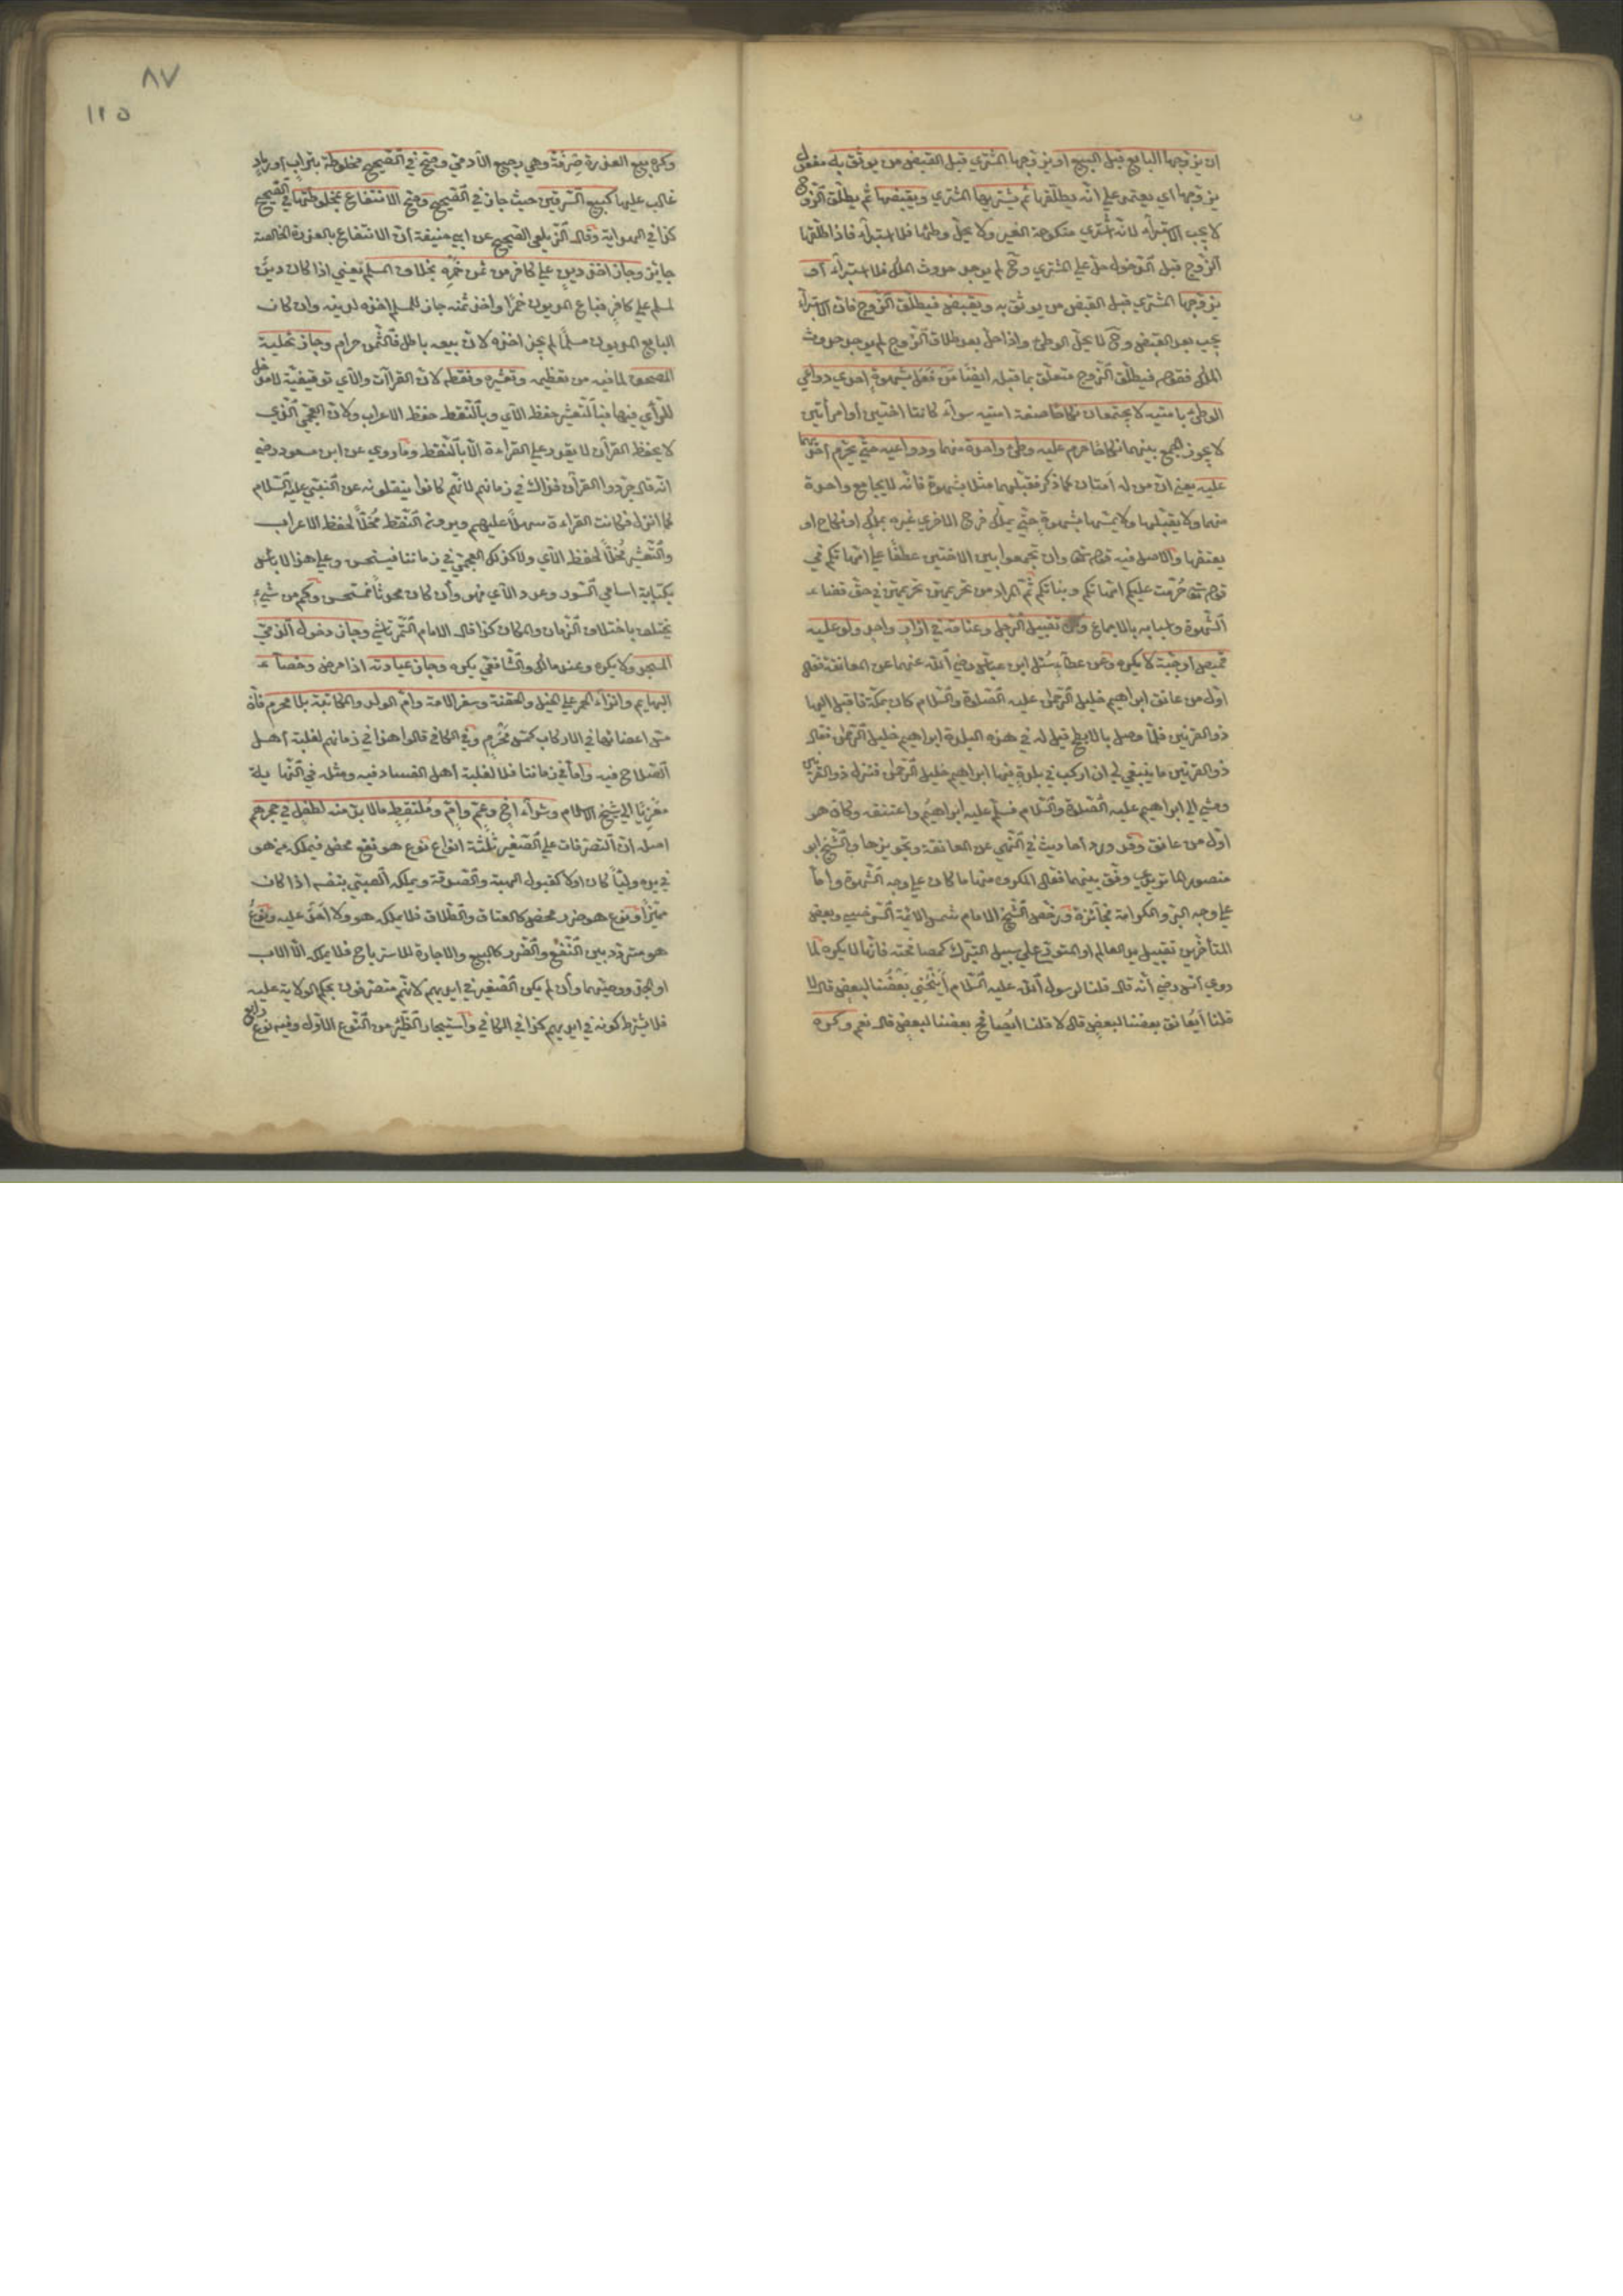 ان يزوجها البايع قبل البيع او يزوجها المشتري قبل القبض من يوثق به مفعول
يزوجها اي يعتمد على انه يطلقها ثم يشتريها المشتري ويقبضها ثم يطلق الزوج
لا يجب الاستبراء لانه اشترى منكوحة الغير ولا يحل وطئها فلا استبراء فاذا طلقها
الزوج قبل الدخول حل على المشتري وح لم يوجد حدوث الملك فلا استبراء او
يزوجها المشتري قبل القبض من يوثق به ويقبض فيطلق الزوج فان الاستبراء
يجب بعد القبض وح لا يحل الوطئ واذا حل بعد طلاق الزوج لم يوجد حدوث
الملك فقوله فيطلق الزوج متعلق بما قبله ايضا من فعل بشهوة احدي دواعي
الوطئ بامتيه لا يجتمعان نكاحا صفة امتيه سواء كانتا اختين او امرأتين
لا يجوز الجمع بينهما نكاحا حرم عليه وطئ واحدة منهما ودواعيه حتى يحرم احديهما
عليه يعني ان من له امتان كما ذكر فقبلهما مثلا بشهوة فانه لا يجامع واحدة
منهما ولا يقبلها ولا يمسها بشهوة حتى يملك فرج الاخرى غيره بملك او نكاح او
يعتقها والاصل فيه قوله تعالى وان تجمعوا بين الاختين عطفا على امهاتكم في
قوله تعالى حرمت عليكم امهاتكم وبناتكم ثم المراد من تحريمهن تحريمهن في حق قضاء
الشهوة واسبابه بالاجماع وكره تقبيل الرجل وعناقه في ازار واحد ولو عليه
قميص او جبة لا يكره وعن عطاء سئل ابن عباس رضي الله عنهما عن المعانقة فقال
اول من عانق ابراهيم خليل الرحمن عليه الصلوة والسلام كان بمكة فاقبل اليها
ذو القرنين فلما وصل بالابطح قيل له في هذه البلدة ابراهيم خليل الرحمن فقال
ذو القرنين ما ينبغي لي ان اركب في بلدة فيها ابراهيم خليل الرحمن فنزل ذو القرنين
ومشى الى ابراهيم عليه الصلوة والسلام فسلم عليه ابراهيم واعتنقه وكان هو
اول من عانق وقد ورد احاديث في النهي عن المعانقة وتجويزها والشيخ ابو
منصور الماتريدي وفق بينهما فقال المكروه منها ما كان على وجه الشهوة واما
على وجه البر والكرامة فجائزة ورخص الشيخ الامام شمس الائمة السرخسي وبعض
المتأخرين تقبيل يد العالم او المتورع على سبيل التبرك كمصافحته فانها لا يكره لما
روى انس رضي انه قال قلنا لرسول الله عليه السلام أينحني بعضنا لبعض قال لا
قلنا أيعانق بعضنا لبعض قال لا قلنا ايصافح بعضنا لبعض قال نعم وكره
٨٧
١٢٥
وكره بيع العذرة صرفة وهي رجيع الآدمي وصح في الصحيح مخلوطة بتراب او رماد
غالب عليها كبيع السرقين حيث جاز في الصحيح وصح الانتفاع بمخلوطتها في الصحيح
كذا في الهداية وقال الزيلعي الصحيح عن ابي حنيفة ان الانتفاع بالعذرة الخالصة
جائز وجاز اخذ دين على كافر من ثمن خمره بخلاف المسلم يعني اذا كان دين
لمسلم على كافر فباع المديون خمرا واخذ ثمنه جاز للمسلم اخذه لدينه وان كان
البايع المديون مسلما لم يجز اخذه لان بيعه باطل فالثمن حرام وجاز تحلية
المصحف لما فيه من تعظيمه وتعشيره ونقطه لان القراآت والآي توقيفية لا مدخل
للرأي فيها فبالتعشير حفظ الآي وبالنقط حفظ الاعراب ولان العجمي الذي
لا يحفظ القرآن لا يقدر على القراءة الا بالنقط وما روي عن ابن مسعود رضي
انه قال جردوا القرآن فذاك في زمانهم لانهم كانوا ينقلونه عن النبي عليه السلام
كما انزل فكانت القراءة سهلا عليهم ويرون النقط مخلا لحفظ الاعراب
والتعشير مخلا لحفظ الآي ولا كذلك العجمي في زماننا فيستحسن وعلى هذا لا بأس
بكتابة اسامي السور وعدد الآي فهو وان كان محدثا فمستحسن وكم من شيء
يختلف باختلاف الزمان والمكان كذا قال الامام التمرتاشي وجاز دخول الذمي
المسجد ولا يكره وعند مالك والشافعي يكره وجاز عيادته اذا مرض وخصاء
البهايم وانزاء الحمر على الخيل والحقنة وسفر الامة وام الولد والمكاتبة بلا محرم فان
مس اعضائها في الاركاب كمس محرم وفي الكافي قالوا هذا في زمانهم لغلبة اهل
الصلاح فيه واما في زماننا فلا لغلبة اهل الفساد فيه ومثله في النهاية
معزيا الى شيخ الاسلام وشراء اخ وعم وام وملتقط ما لا بد منه لطفل في حجرهم
اصله ان التصرفات على الصغير ثلثة انواع نوع هو نفع محض فيملكه من هو
في يده وليا كان او لا كقبول الهبة والصدقة ويملكه الصبي بنفسه اذا كان
مميزا ونوع هو ضرر محض كالعتاق والطلاق فلا يملكه هو ولا احد عليه ونوع
هو متردد بين النفع والضرر كالبيع والاجارة للاسترباح فلا يملكه الا الاب
او الجد ووصيهما وان لم يكن الصغير في ايديهم لانهم متصرفون بحكم الولاية عليه
فلا يشترط كونه في ايديهم كذا في الكافي واستيجار الظئر من النوع الاول وفيه نوع رابع